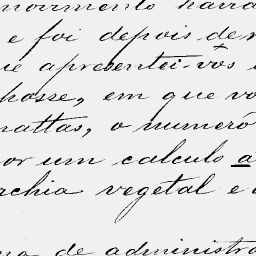 movimento hava
e foi depois de
ue apresentei-vos
posse, em que vo
mattas, o numero
or um calculo a
rchia vegetal e
de administra